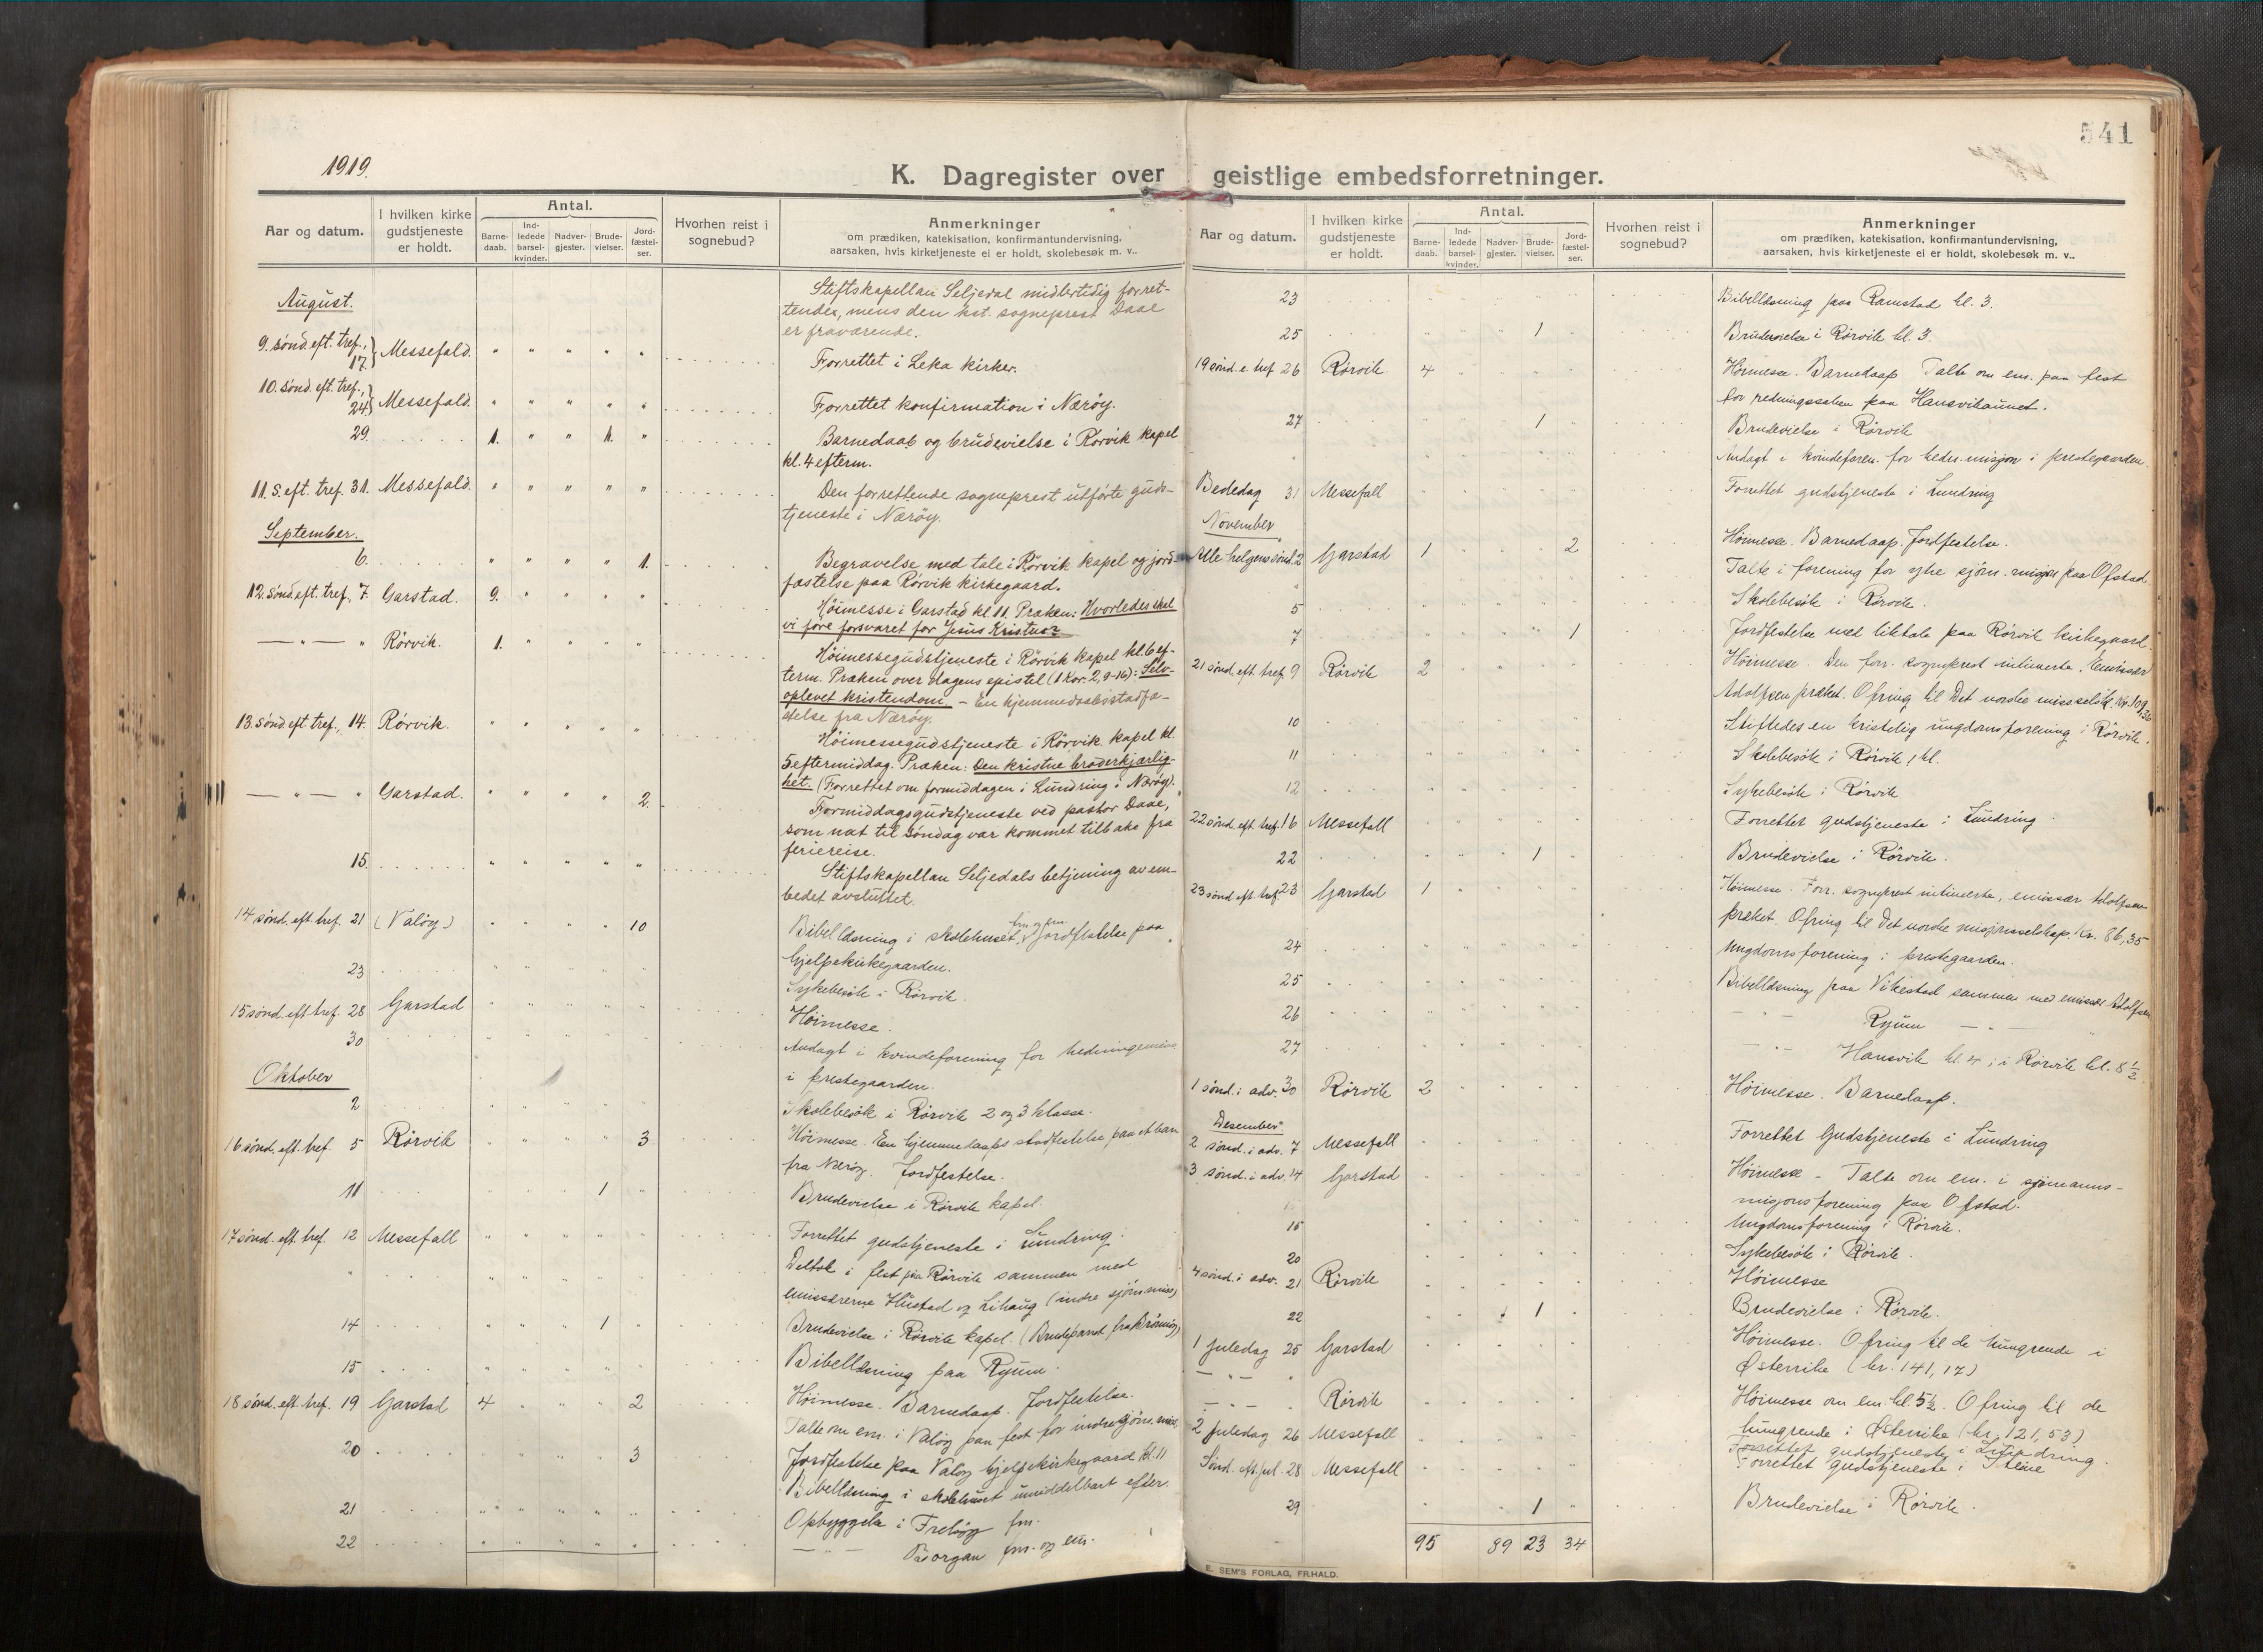 541
1919.
K. Dagregister over geistlige embedsforretninger.
Aar og datum.
I hvilken kirke gudstjeneste er holdt.
Antal.
Barne-daab.
Ind-ledede barsel-kvinder.
Nadver-gjester.
Brude-vielser.
Jord-fæstel-ser.
Hvorhen reist i sognebud?
Anmerkninger
om prædiken, katekisation, konfirmantundervisning,
aarsaken, hvis kirketjeneste ei er holdt, skolebesøk m. v..
August.
Stiftskapellan Seljedal midlertidig forret-
tender, mens den kst. sogneprest Daae
er fraværende.
9. sønd. eft. tref., 17. Messefald. " " " " " Forrettet i Leka kirker.
10. sønd. eft. tref., 24. Messefald. " " " " " Forrettet konfirmation i Nærøy.
29. 1. " " 1. " Barnedaab og brudevielse i Rørvik kapel
kl. 4 efterm.
11. S. eft. tref. 31. Messefald. " " " " " Den forrettende sogneprest utførte guds-
tjeneste i Nærøy.
September.
6. " " " " 1. Begravelse med tale i Rørvik kapel og jord-
fæstelse paa Rørvik kirkegaard.
12. sønd. eft. tref., 7. Garstad. 9. " " " " Høimesse i Garstad kl. 11. Præken: Hvorledes skal
vi føre forsvaret for Jesus Kristus?
— " — " Rørvik. 1. " " " " Høimessegudstjeneste i Rørvik kapel kl. 6 ef-
term. Præken over dagens epistel (1 Kor. 2, 9-16): Selv-
oplevet kristendom. – En hjemmedaabsstadfæ-
stelse fra Nærøy.
13. sønd. eft. tref., 14. Rørvik. " " " " " Høimessegudstjeneste i Rørvik kapel kl.
5 eftermiddag. Præken: Den kristne broderkjærlig-
het. (Forrettet om formiddagen i Lundring i Nærøy).
— " — " Garstad. " " " " 2. Formiddagsgudstjeneste ved pastor Daae,
som nat til søndag var kommet tilbake fra
feriereise.
15. " " " " " Stiftskapellan Seljedals betjening av em-
bedet avsluttet.
14 sønd. eft. tref. 21 (Valøy) " " " " 10 Bibellæsning i skolehuset fm og em. Jordfestelse paa
hjelpekirkegaarden.
23 Sykebesøk i Rørvik.
15 sønd. eft. tref. 28 Garstad Høimesse.
30 Andagt i kvindeforening for
i prestegaarden.
Oktober
2 Skolebesøk i Rørvik 2 og 3 klasse.
16 sønd. eft. tref. 5 Rørvik 3 Høimesse. En hjemmedaabs stadfestelse paa et barn
fra Nærøy. Jordfestelse.
11 1 Brudevielse i Rørvik kapel.
17 sønd. eft. tref. 12 Messefall Forrettet gudstjeneste i Lundring.
Deltok i fest paa Rørvik sammen med
emissærerne Hustad og Lihaug (indre sjøm. miss)
14 1 Brudevielse i Rørvik kapel. (Brudeparet fra
15 Bibellæsning paa Ryum.
18 sønd. eft. tref. 19 Garstad 4 2 Høimesse. Barnedaap. Jordfestelse.
Talte om em. i Valøy paa fest for indre sjøm. miss.
20 3 Jordfestelse paa Valøy hjelpekirkegaard kl. 11
Bibellæsning i skolehuset umiddelbart efter.
21 Opbyggelse i fm.
22 — " — Borgan fm. og em.
Aar og datum.
I hvilken kirke gudstjeneste er holdt.
Antal.
Barne-daab.
Ind-ledede barsel-kvinder.
Nadver-gjester.
Brude-vielser.
Jord-fæstel-ser.
Hvorhen reist i sognebud?
Anmerkninger
om prædiken, katekisation, konfirmantundervisning,
aarsaken, hvis kirketjeneste ei er holdt, skolebesøk m. v..
23 Bibellæsning paa Ramstad kl. 3.
25 1 Brudevielse i Rørvik kl. 3.
19 sønd. e. tref 26 Rørvik. 4 Høimesse. Barnedaap Talte om em. paa fest
for redningssaken paa Hansvikaunet.
27 1 Brudevielse i Rørvik
Andagt i kvindeforen. for hedn. misjon i prestegaarden.
Bededag 31 Messefall Forrettet gudstjeneste i Lundring
November
Alle helgens sønd. 2 Garstad 1 2 Høimesse. Barnedaap. Jordfestelse.
Talte i forening for ytre sjøm. misjon paa Ofstad
5 Skolebesøk i Rørvik.
7 1 Jordfestelse med liktale paa Rørvik kirkegaard.
21 sønd. eft. tref. 9 Rørvik 2 Høimesse. Den forr. sogneprest intimerte. Emissær
Adolfsen præket. Ofring til Det norske misselsk. kr. 109,36
10 Stiftedes en kristelig ungdomsforening i Rørvik.
11 Skolebesøk i Rørvik 1 kl.
12 Sykebesøk i Rørvik
22 sønd. eft. tref. 16 Messefall Forrettet gudstjeneste i Lundring.
22 1 Brudevielse i Rørvik.
23 sønd. eft. tref. 23 Garstad 1 Høimesse. Forr. sogneprest intimerte, emissær Adolfsen
præket. Ofring til Det norske misjonsselskap. Kr. 86,35
24 Ungdomsforening i prestegaarden.
25 Bibellæsning paa Vikestad sammen med emissær Adolfsen
26 — " — Ryum — " —
27 — " — Hansvik kl. 4, i Rørvik kl. 8 ½
1 sønd. i adv. 30 Rørvik 2 Høimesse. Barnedaap.
Desember
2 sønd. i adv. 7 Messefall Forrettet Gudstjeneste i Lundring
3 sønd. i adv. 14 Garstad Høimesse – Talte om em. i sjømanns-
misjonsforening paa Ofstad.
15 Ungdomsforening i Rørvik.
20 Sykebesøk i Rørvik.
4 sønd. i adv. 21 Rørvik Høimesse
22 1 Brudevielse i Rørvik.
1 juledag 25 Garstad Høimesse. Ofring til de hungrende i
Østerrike (kr. 141,17)
— " — Rørvik Høimesse om em. kl. 5½. Ofring til de
hungrende i Østerrike (kr. 121,53)
2 juledag 26 Messefall Forrettet gudstjeneste i Lundring.
Sønd. eft. jul. 28 Messefall Forrettet gudstjeneste i Steine
29 1 Brudevielse i Rørvik.
95 89 23 34
E. SEM'S FORLAG, FR.HALD.